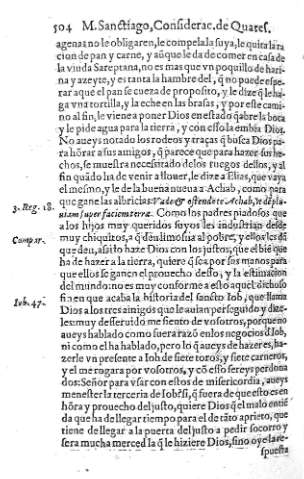 504 M. Sanctiago, Considerac. de Quares.
agenas no le obligaren, le compela la suya, le quita la ra
cion de pan y carne, y aũque le da de comer en casa de
la viuda Sareptana, no es mas que vn poquillo de hari-
na y azeyte, y es tanta la hambre del, q̃ no puede espe-
rar aque el pan se cueza de proposito, y le dize q̃ le ha-
ga vna tortilla, y la eche en las brasas, y por este cami-
no al fin, le viene a poner Dios en estado q̃ abre la boca
y le pide agua para la tierra, y con esso la embia Dios.
No aueys notado los rodeos y traças q̃ busca Dios pa-
ra hõrar a sus amigos, q̃ parece que para hazer sus he-
chos, se muestra necessitado de los ruegos dellos, y al
fin quãdo ha de venir a llouer, le dize a Elias, que vaya
el mesmo, y le de la buena nueua a Achab, como para
3. Reg. 18. que gane las albricias: Vade & ostende te Achab, vt dẽ plu-
uiam super faciem terræ. Como los padres piadosos que
a los hijos muy queridos suyos les industrian desde
Compar. muy chiquitos, a q̃ den limosna al pobre, y ellos les dã
que den, assi lo haze Dios con los justos, que el biẽ que
ha de hazer a la tierra, quiere q̃ sea por sus manos para
que ellos se ganen el prouecho desto, y la estimacion
del mundo: no es muy conforme a esto aquel dichoso
Iob. 47. fin en que acaba la historia del sancto Iob, que llama
Dios a los tres amigos que le auian perseguido y dize-
les: muy desseruido me siento de vosotros, porque no
aueys hablado como fuera razõ en los negocios d̃ Iob,
ni como el ha hablado, pero lo q̃ aueys de hazer es, ha-
zerle vn presente a Iob de siete toros, y siete carneros,
y el me rogara por vosotros, y cõ esso sereys perdona
dos: Señor para vsar con estos de misericordia, aueys
menester la terceria de Iob? si, q̃ fuera de que esto es en
hõra y prouecho del justo, quiere Dios q̃ el malo entiẽ
da que ha de llegar tiempo para el de tãto aprieto, que
tiene de llegar a la puerta del justo a pedir socorro y
sera mucha merced la q̃ le hiziere Dios, sino oye la re-
spuesta